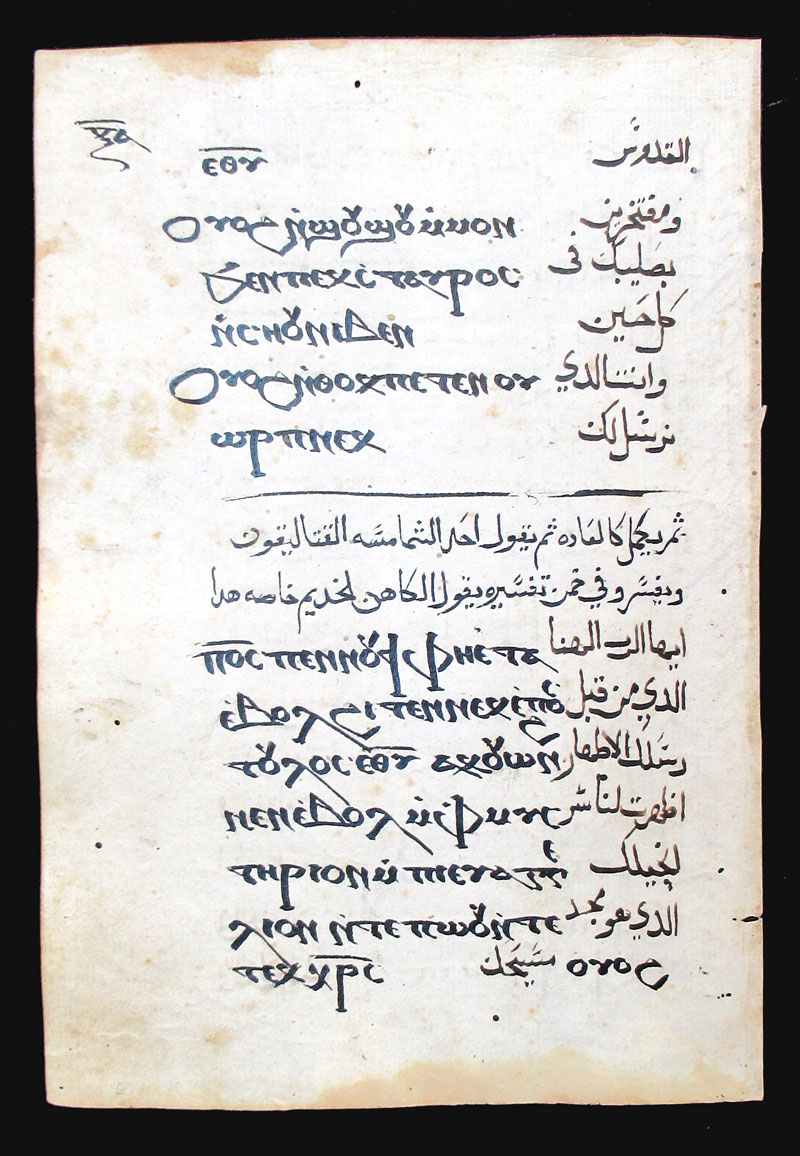 ⲉ̅ⲑ̅ⲩ̅ القدوس
Ⲟⲩⲟϩ ⲛ̀ϣⲟⲩϣⲟⲩ ⲙ̀ⲙⲟⲛ ومفتخرين
ϧⲉⲛ ⲡⲉⲕⲥ̀ⲧⲁⲩⲣⲟⲥ بصليبك فى
ⲛ̀ⲥⲏⲟⲩ ⲛⲓⲃⲉⲛ كل حين
Ⲟⲩⲟϩ ⲛ̀ⲑⲟⲕ ⲡⲉⲧⲉⲛⲟⲩ وانت الدي
ⲱⲣⲡ ⲛⲉⲕ نرسل لك
ثم يكمل كالعاده ثم يقول احد الشمامسه القتاليقون
ويفسر وفي ضمن تفسيره يقول الكاهن الخديم خاصه هدا
ⲡ̅ⲟ̅ⲥ ⲡⲉⲛⲛⲟⲩϯ ⲫⲏⲉ̀ⲧⲁ ايها الرب الهنا
ⲉ̀ⲃⲟⲗ ϩⲓⲧⲉⲛ ⲛⲉⲕⲁ̀ⲡⲟⲥ الدي من قبل
ⲧⲟⲩⲗⲟⲥ ⲉ̅ⲑ̅ⲩ̅ ⲁⲕⲟⲩⲱⲛϩ رسلك الاطهار
ⲛⲉⲛ ⲉ̀ⲃⲟⲗ ⲙ̀ⲫⲙⲩⲥ اظهرت لنا سر
ⲧⲏⲣⲓⲟⲛ ⲙ̀ⲡⲉⲩⲁⲅⲅⲉ انجيلك
ⲗⲓⲟⲛ ⲛ̀ⲧⲉ ⲡⲱⲟⲩ ⲛ̀ⲧⲉ الدي هو مجد
ⲡⲉⲕⲭ̅ⲣ̅ⲥ مسيحك ⲟⲩⲟϩ